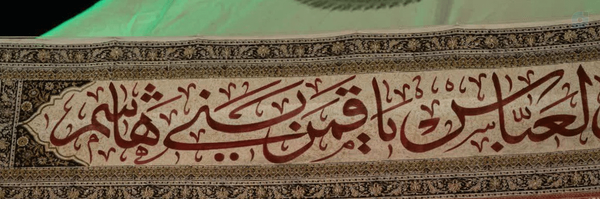 العَبّاس يا قمر بني هاشم